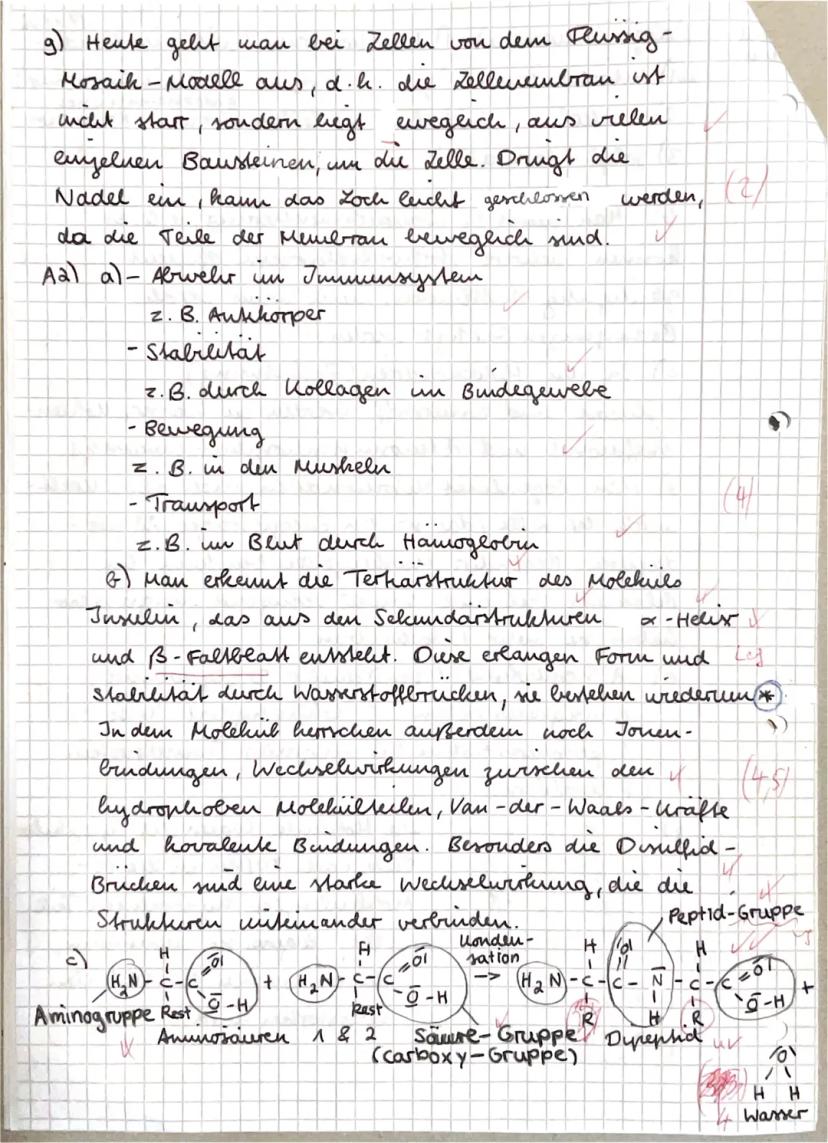 g) Heute geht man bei Zellen von dem Flüssig-
Mosaik-Modell aus, d.h. die Zellmembran ist
nicht starr, sondern liegt eweglich, aus vielen
einzelnen Bausteinen, um die Zelle. Dringt die
Nadel ein, kann das Loch leicht geschlossen werden, (2)
da die Teile der Membran beweglich sind.
A2) a) - Abwehr im Immunsystem
z. B. Antikörper
- Stabilität
z.B. durch Kollagen im Bindegewebe
- Bewegung
z. B. in den Muskeln
- Transport (4)
z.B. im Blut durch Hämoglobin
b) Man erkennt die Tertiärstruktur des Moleküls
Insulin, das aus den Sekundärstrukturen α-Helix
und β-Faltblatt entsteht. Diese erlangen Form und
Stabilität durch Wasserstoffbrücken, sie bestehen wiederum *
In dem Molekül herrschen außerdem noch Ionen-
bindungen, Wechselwirkungen zwischen den (4,5)
hydrophoben Molekülteilen, Van-der-Waals-Kräfte
und kovalente Bindungen. Besonders die Disulfid-
Brücken sind eine starke Wechselwirkung, die die
Strukturen miteinander verbinden.
Peptid-Gruppe
c) H H Konden-sation H O H
H₂N - C - C O + H₂N - C - C O → H₂N - C - C - N - C - C O +
O - H O - H O - H
Aminogruppe Rest Rest R H R
Aminosäuren 1 & 2 Säure-Gruppe Dypeptid
(Carboxy-Gruppe)
O
H H
4 Wasser